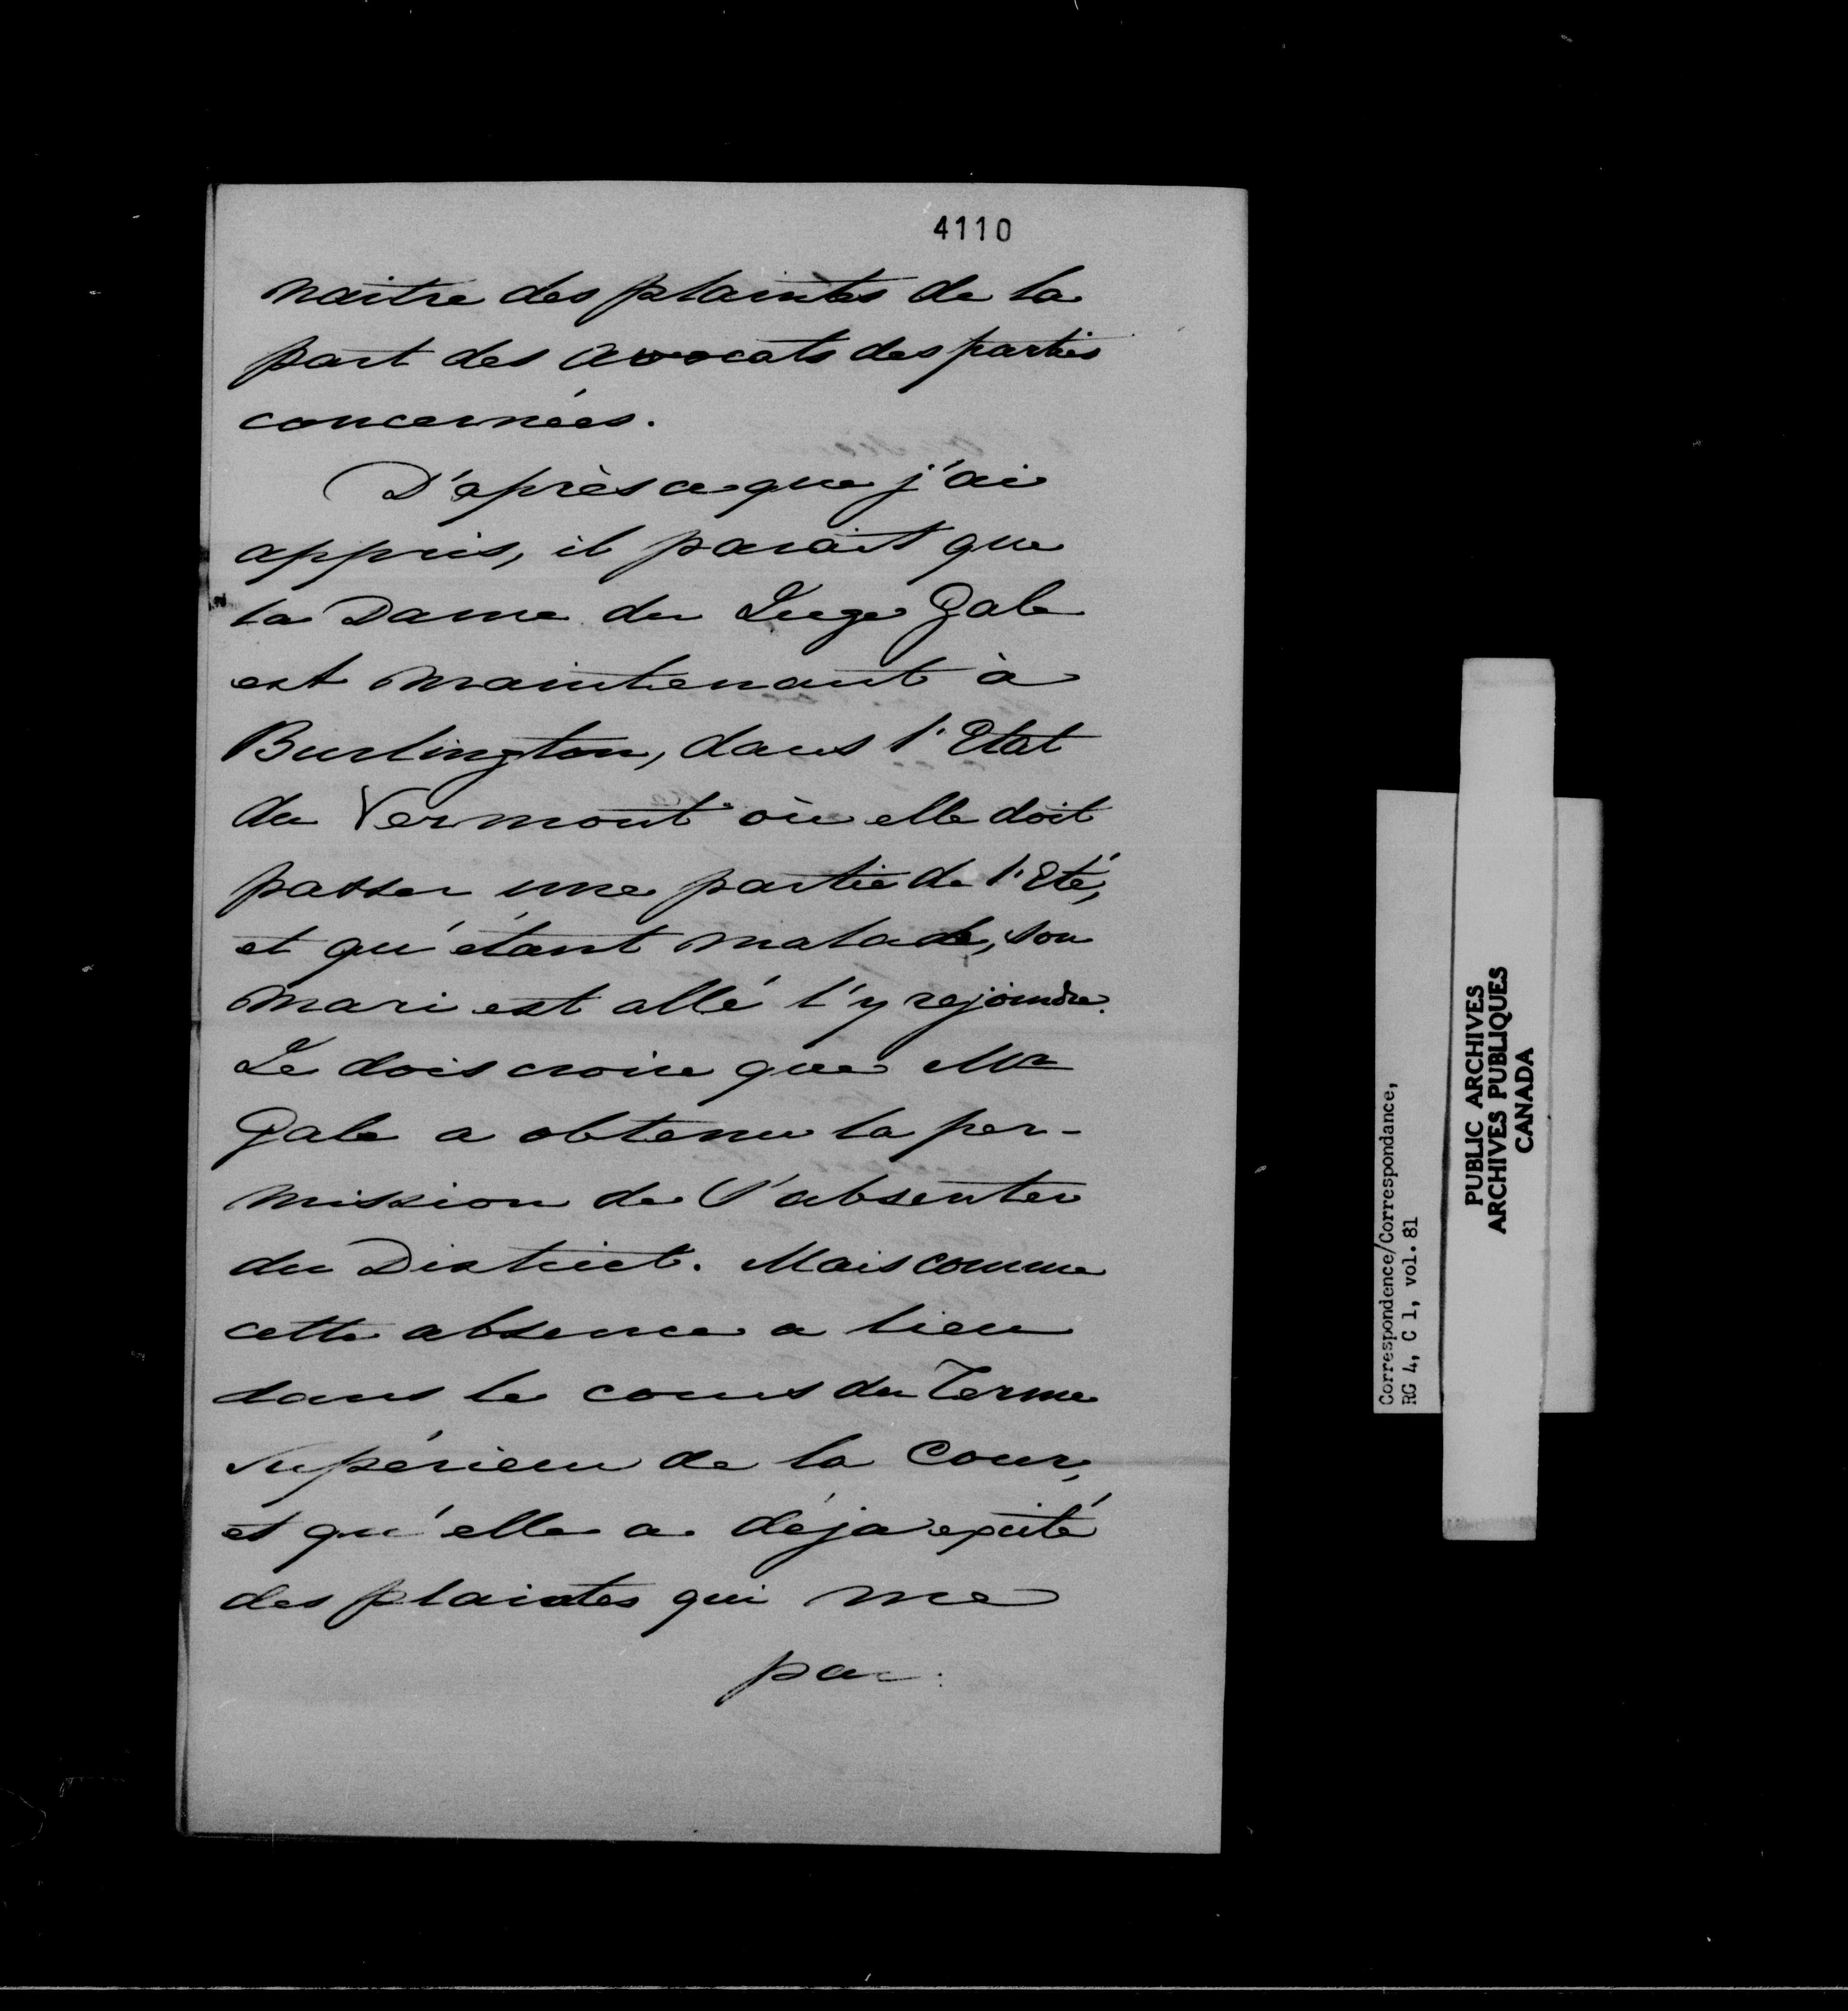 4110
naître des plaintes de la
part des avocats des parties
concernées.
D'après ce que j'ai
appris, il parait que
la Dame du Juge Gale
est maintenant à
Burlington, dans l'Etat
du Vermont où elle doit
passer une partie de l'Eté,
et qu'étant malade, son
mari est allé l'y rejoindre.
Je dois croire que Mr
Gale a obtenu la per-
mission de s'absenter
du District. Mais comme
cette absence a lieu
dans le cours du Terme
Supérieur de la Cour,
et qu'elle a déja excité
des plaintes qui me
par
Correspondence/Correspondance,
RG 4, C 1, vol. 81
PUBLIC ARCHIVES
ARCHIVES PUBLIQUES
CANADA